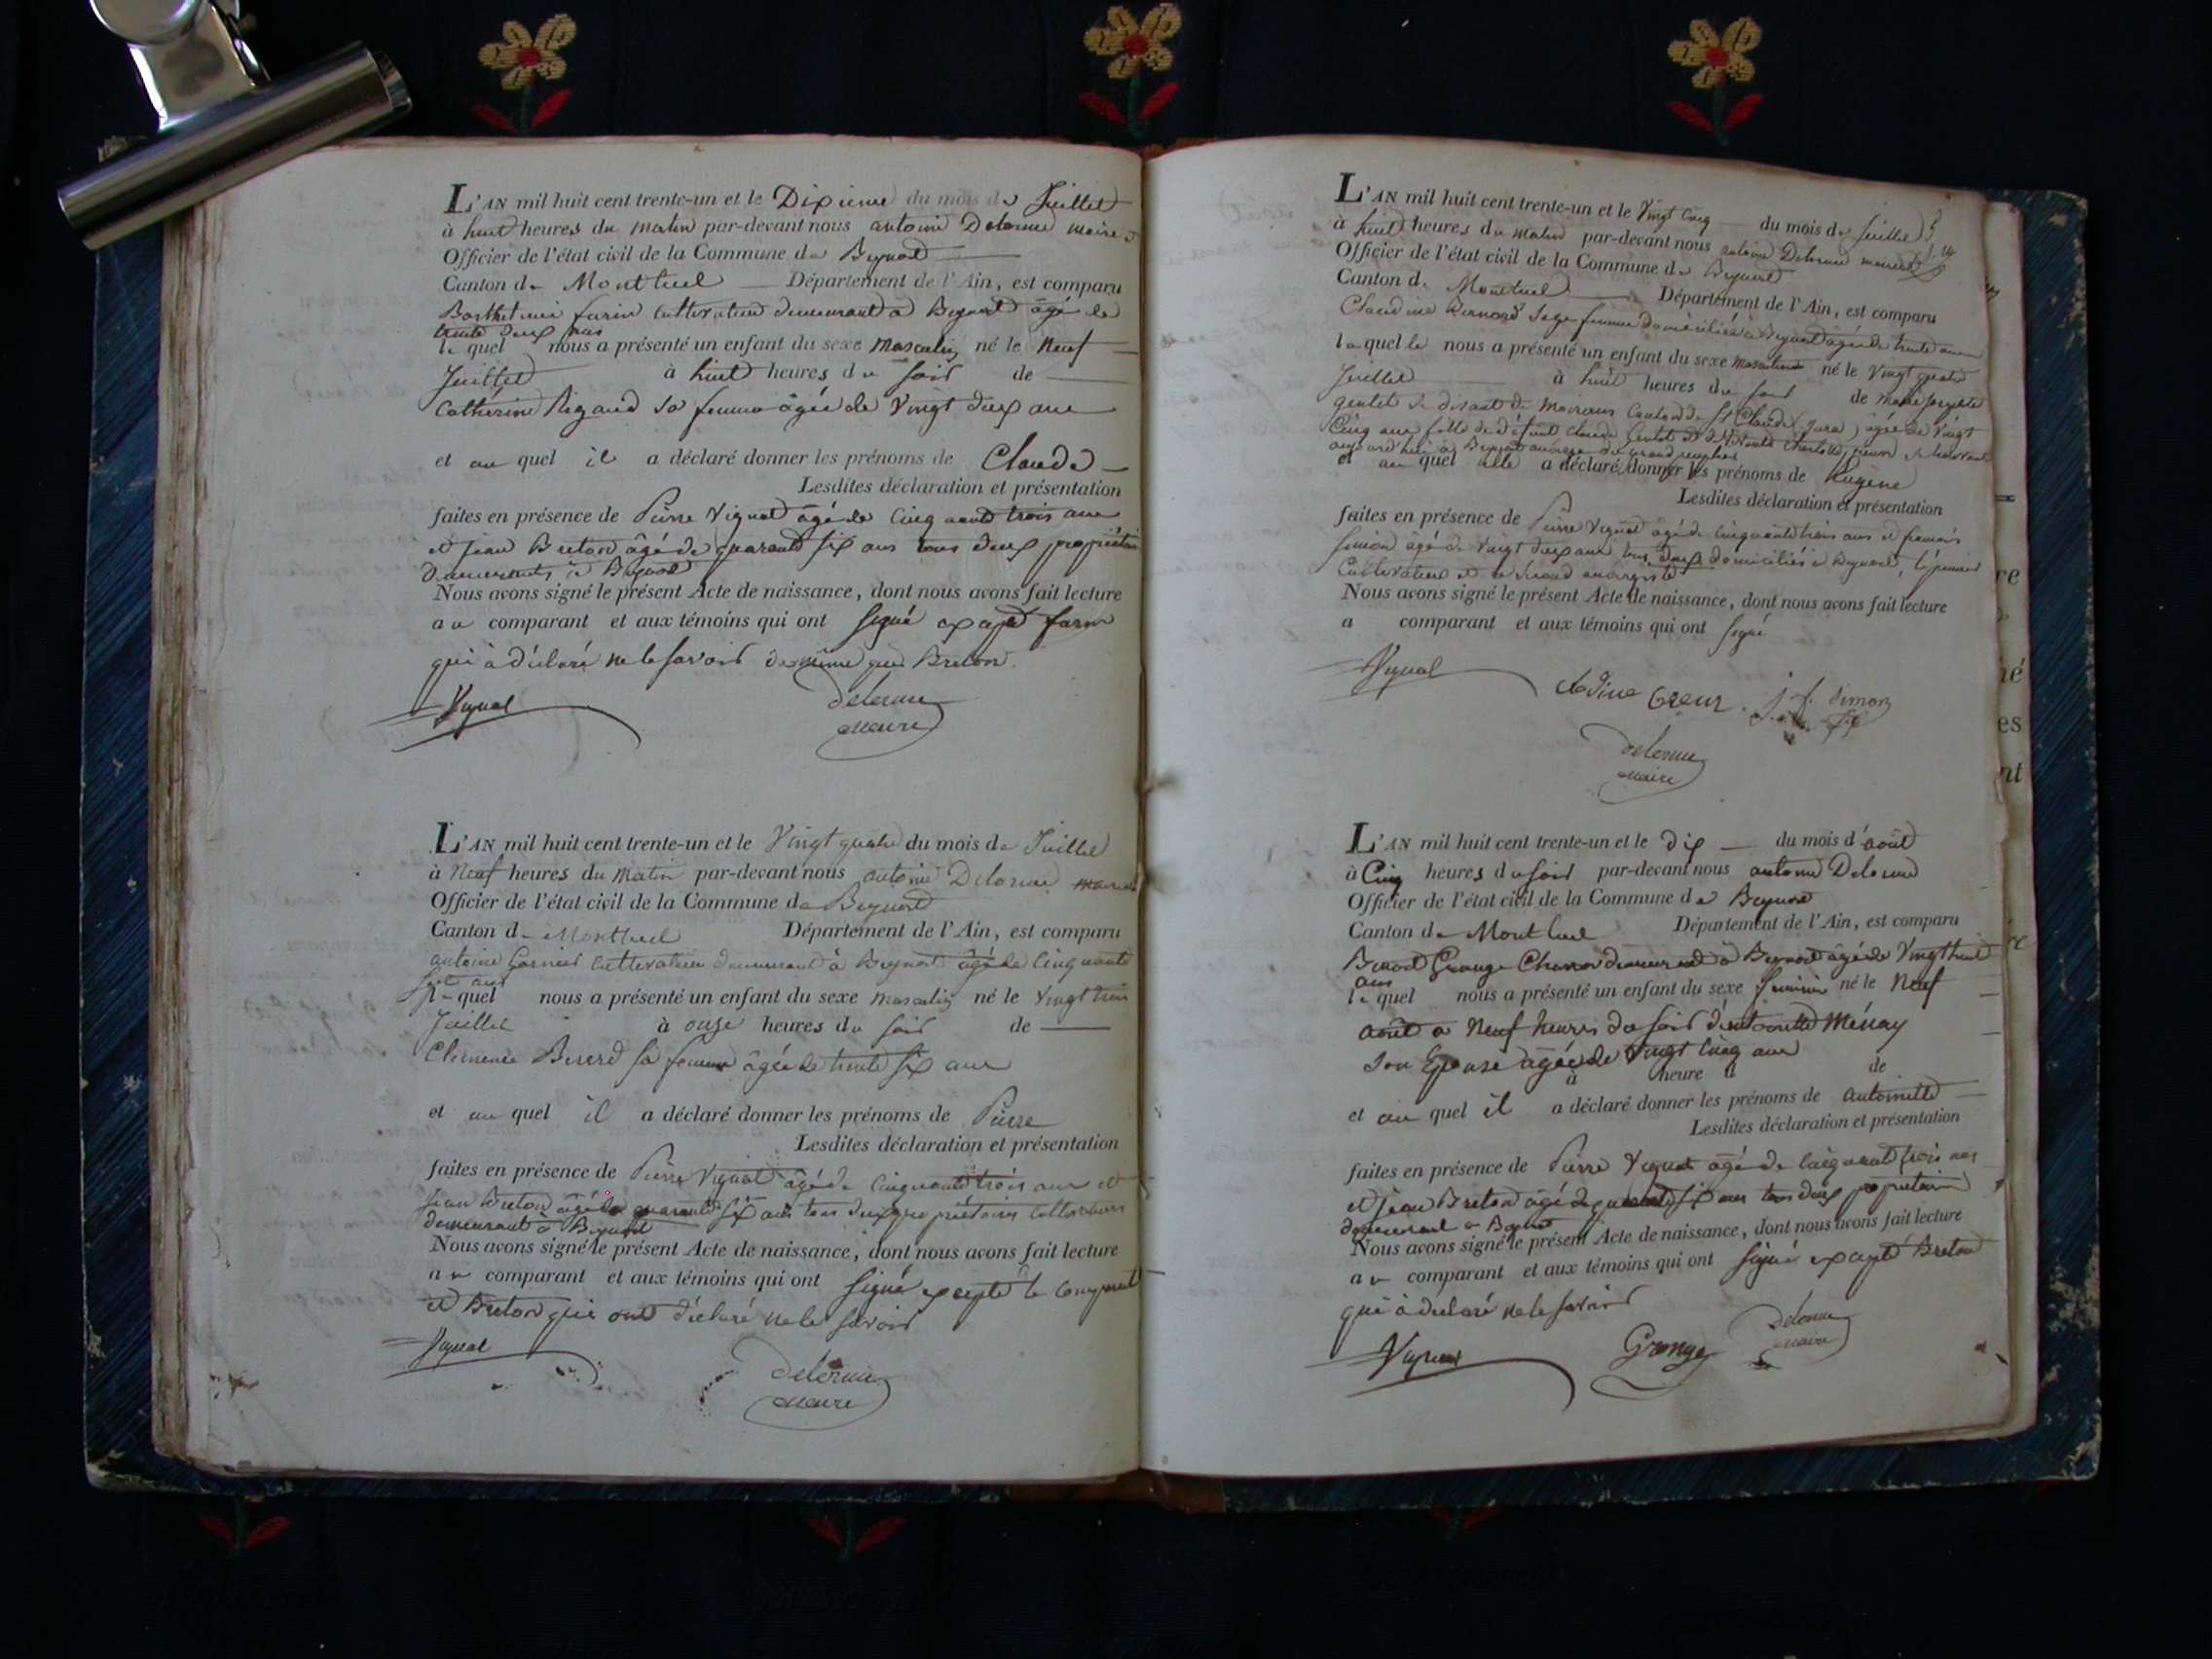 L'AN mil huit cent trente-un et le Dixieme du mois de Juillet
à huit heures du matin par-devant nous antoine Delorme maire
Officier de l'état civil de la Commune de Beynost
Canton de Montluel Département de l'Ain, est comparu
Barthelemi furin cultivateur demeurant a Beynost âgé de
trente deux ans
le quel nous a présenté un enfant du sexe masculin né le Neuf
Juillet à huit heures du soir de
Catherine Rigaud sa femme âgée de Vingt deux ans
et au quel il a déclaré donner les prénoms de Claude
Lesdites déclaration et présentation
faites en présence de Pierre Vignat âgé de Cinquante trois ans
et jean Breton âgé de quarante six ans tous deux propriétaires
demeurants à Beynost
Nous avons signé le présent Acte de naissance, dont nous avons fait lecture
au comparant et aux témoins qui ont signé excepté furin
qui à déclaré ne le savoir de même que Breton.
Vignat delorme
maire
L'AN mil huit cent trente-un et le Vingt quatre du mois de Juillet
à Neuf heures du Matin par-devant nous antoine Delorme maire
Officier de l'état civil de la Commune de Beynost
Canton de Montluel Département de l'Ain, est comparu
antoine Garnier cultivateur demeurant à Beynost âgé de Cinquante
sept ans
le quel nous a présenté un enfant du sexe masculin né le Vingt trois
Juillet à onze heures du soir de
Clemence Bererd sa femme âgée de trente six ans
et au quel il a déclaré donner les prénoms de Pierre
Lesdites déclaration et présentation
faites en présence de Pierre Vignat âgé de Cinquante trois ans et
jean Breton âgé de quarante six ans tous deux propriétaires cultivateurs
demeurant à Beynost
Nous avons signé le présent Acte de naissance, dont nous avons fait lecture
au comparant et aux témoins qui ont signé excepté le comparant
et Breton qui ont déclaré ne le savoir
Vignat delorme
maire
L'AN mil huit cent trente-un et le Vingt Cinq du mois de Juillet
à huit heures du matin par-devant nous antoine Delorme maire
Officier de l'état civil de la Commune de Beynost
Canton de Montluel Département de l'Ain, est comparu
Claudine Bernard Sage femme domiciliée à Beynost âgée de trente ans
laquelle nous a présenté un enfant du sexe masculin né le Vingt quatre
Juillet à huit heures du soir de marie josephte
gentet se disant de Moirans Canton de St Claude (jura) âgée de Vingt
Cinq ans fille de défunt Claude Gentet et de Charlotte se trouvant
aujourd'hui à Beynost
et au quel elle a déclaré donner les prénoms de Eugène
Lesdites déclaration et présentation
faites en présence de Pierre Vignat âgé de Cinquante trois ans et francois
Simon âgé de Vingt deux ans tous deux domiciliés à Beynost, le premier
Cultivateur et le second
Nous avons signé le présent Acte de naissance, dont nous avons fait lecture
a comparant et aux témoins qui ont signé
Vignat j. f. Simon
delorme
maire
L'AN mil huit cent trente-un et le dix du mois d'août
à Cinq heures du soir par-devant nous antoine Delorme
Officier de l'état civil de la Commune de Beynost
Canton de Montluel Département de l'Ain, est comparu
Benoit Grange demeurant à Beynost âgé de Vingt huit
ans
le quel nous a présenté un enfant du sexe feminin né le Neuf
août a Neuf heures du soir d'antoinette Ménay
son Epouse âgée de Vingt Cinq ans
à heure d de
et au quel il a déclaré donner les prénoms de antoinette
Lesdites déclaration et présentation
faites en présence de Pierre Vignat âgé de Cinquante trois ans
et jean Breton âgé de quarante six ans tous deux propriétaires
demeurant a Beynost
Nous avons signé le présent Acte de naissance, dont nous avons fait lecture
au comparant et aux témoins qui ont signé excepté Breton
qui à déclaré ne le savoir
Vignat Grange delorme
maire